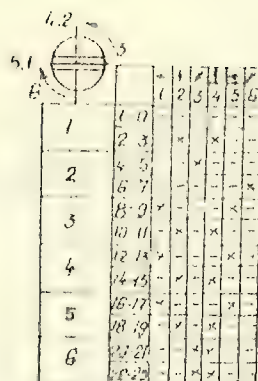 4.2
5.1 3
6
1 2 3 4 5 6
1 1-0 - - - - - -
2-3 - × - × - -
2 4-5 - - × - - -
6-7 - - - - - ×
3 8-9 × - - - × -
10-11 - × - × - -
4 12-13 × - - - × -
14-15 - × - × - -
5 16-17 × - - - × -
18-19 - × - × - -
6 20-21 - - × × - -